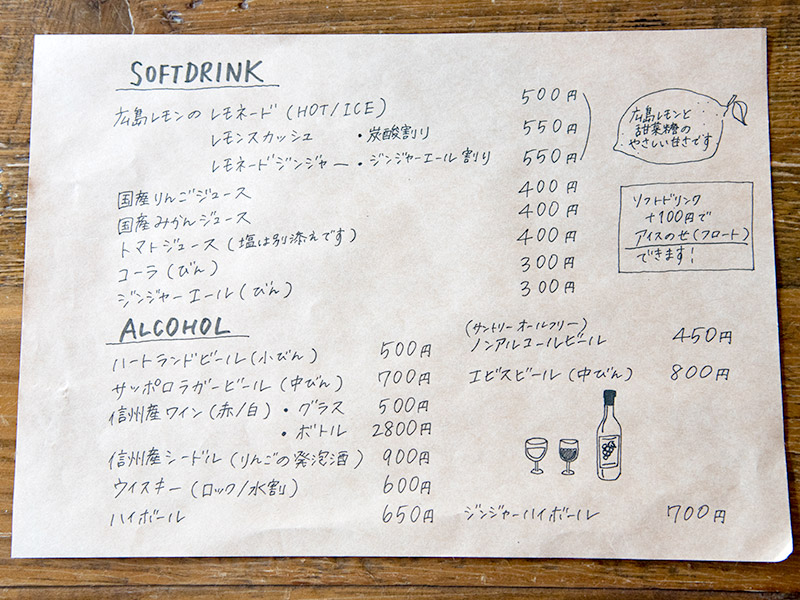 SOFTDRINK
広島レモンの レモネード (HOT/ICE) 500円
レモンスカッシュ ・炭酸割り 550円
レモネードジンジャー ・ジンジャーエール割り 550円
広島レモンと
甜菜糖の
やさしい甘さです
国産りんごジュース 400円
国産みかんジュース 400円
トマトジュース (塩は別添えです) 400円
コーラ (びん) 300円
ジンジャーエール (びん) 300円
ソフトドリンク
+100円で
アイスのせ(フロート)
できます!
ALCOHOL
ハートランドビール (小びん) 500円
サッポロラガービール (中びん) 700円
信州産ワイン (赤/白) ・グラス 500円
・ボトル 2800円
信州産シードル (りんごの発泡酒) 900円
ウイスキー (ロック/水割) 600円
ハイボール 650円
(サントリー オールフリー)
ノンアルコールビール 450円
エビスビール (中びん) 800円
ジンジャーハイボール 700円